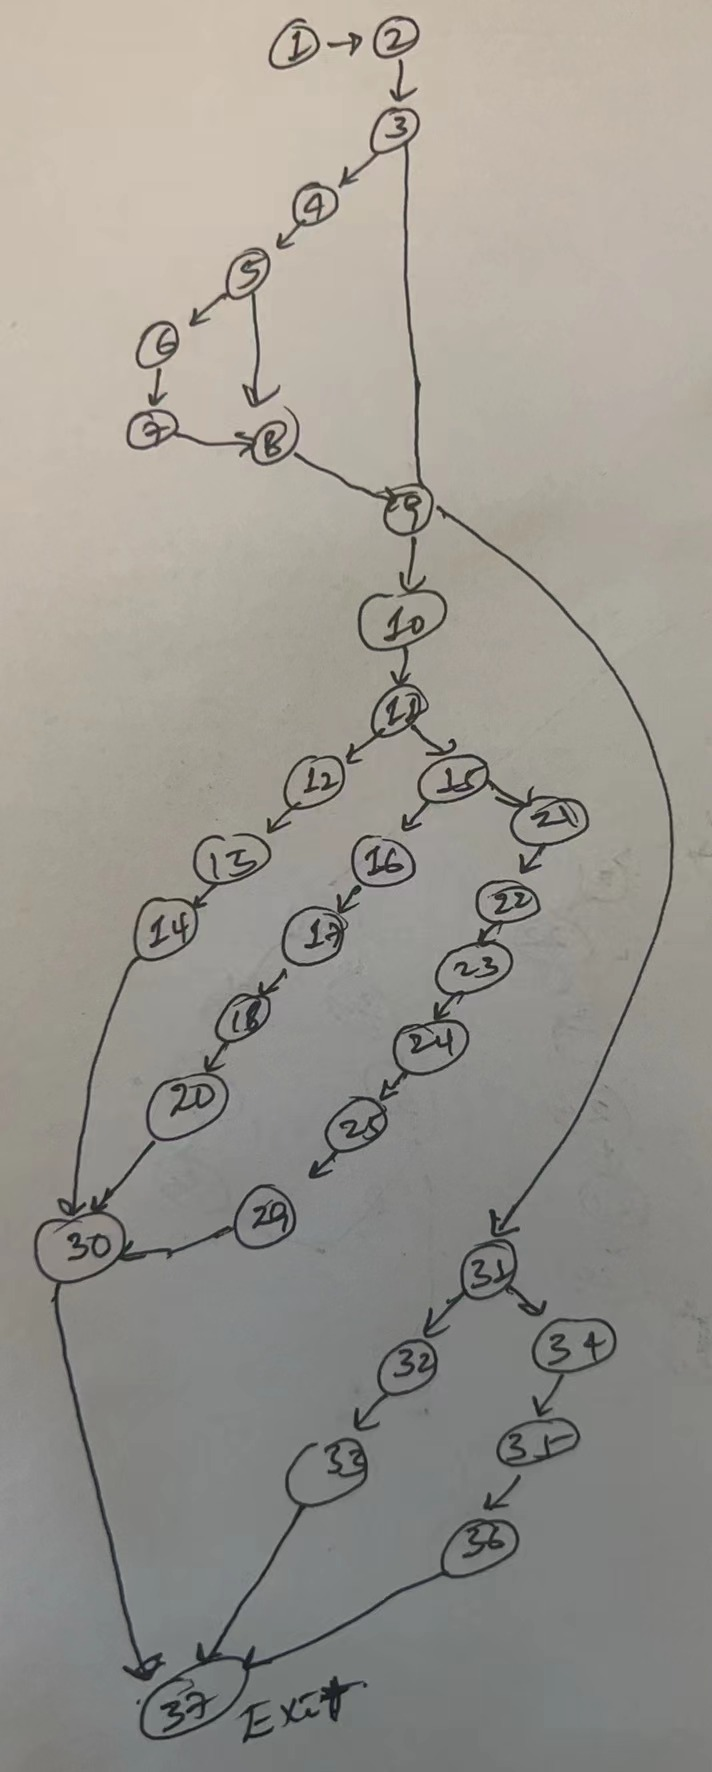 1 → 2
3
4
5
6
7
8
9
10
11
12 15
21
13 16
22
14 17
23
18
24
20
25
29
30
31
32 34
33 35
36
37 Exit